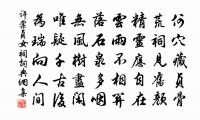 何穴藏貞骨
荒祠見舊顏
精靈應自在
雲雨不相關
落石泉多咽
無風樹盡閑
唯疑千古後
為瑞向人間
許棠貞女祠詞典網集